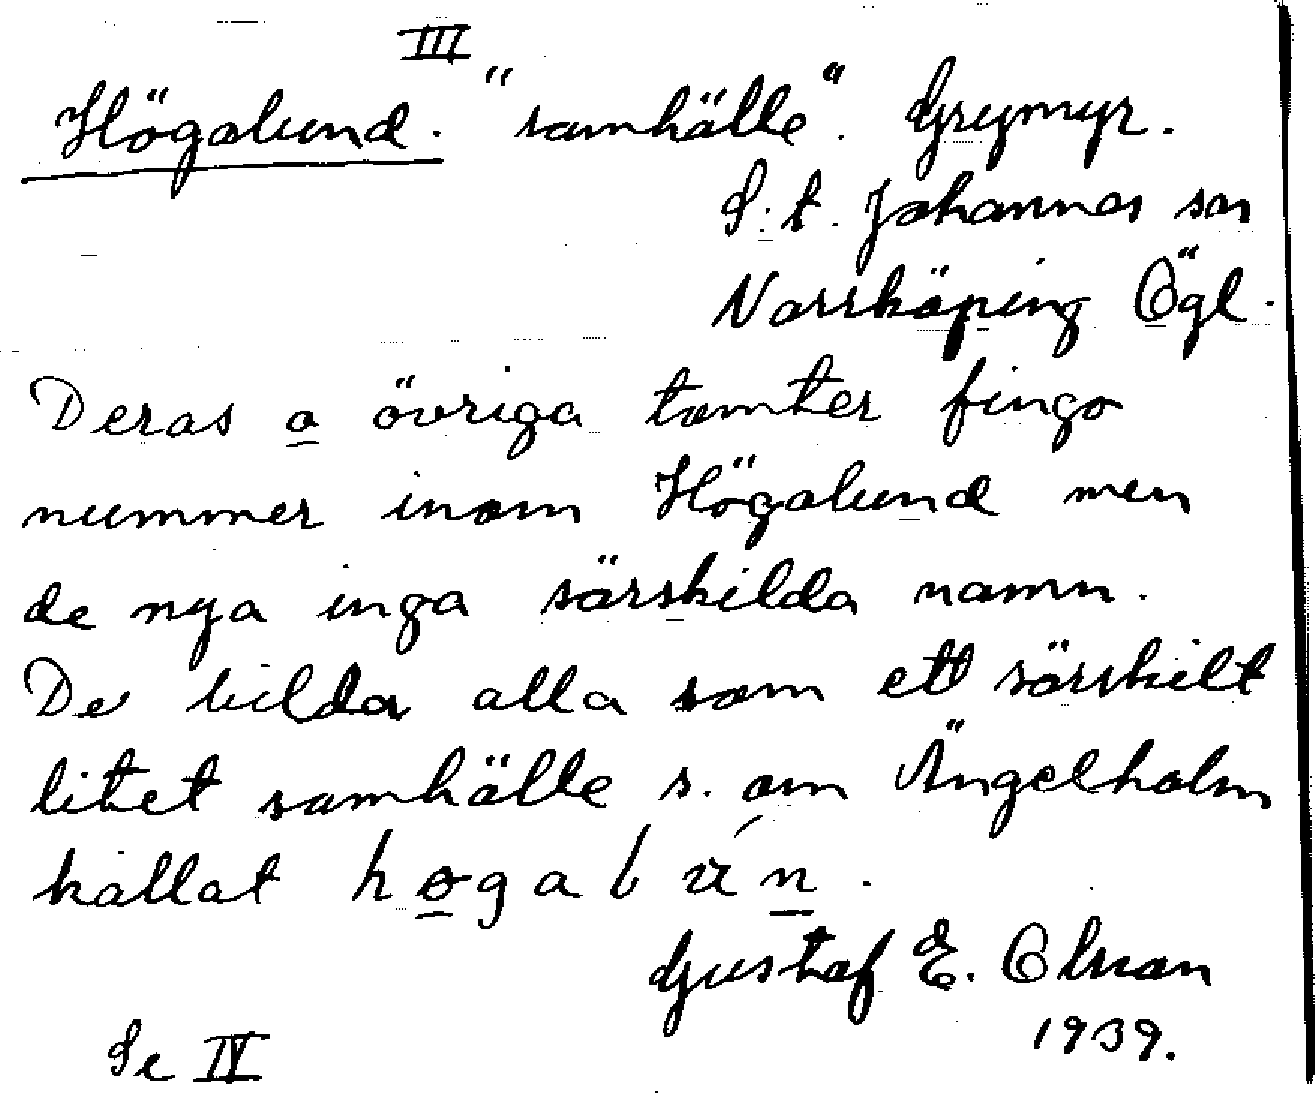 III
Högalund. "samhälle". Grymyr.
S:t. Johannes sn
Norrköping Ögl.
Deras o övriga tomter fingo
nummer inom Högalund men
de nya inga särskilda namn.
De bilda alla som ett särskilt
litet samhälle s. om Ängelholm
kallat høgalún.
Gustaf E. Olsson
1939.
Se IV